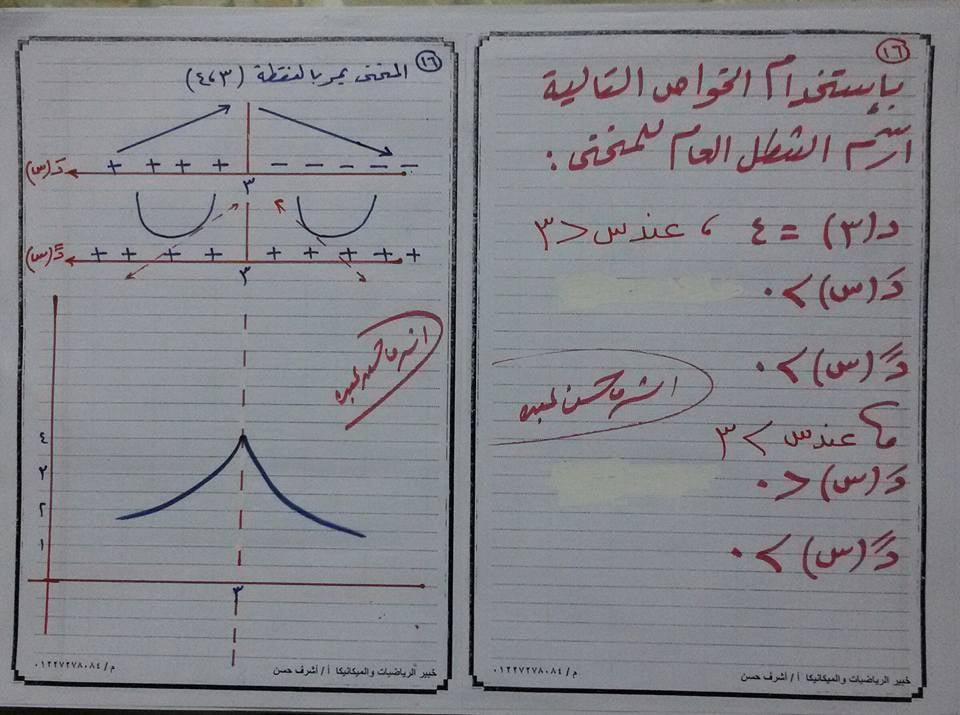 ١٦
بإستخدام الخواص التالية
أرسم الشكل العام للمنحنى :
د(٣) = ٤ ، عند س < ٣
دَ(س) > ٠
دً(س) > ٠
عند س > ٣
دَ(س) < ٠
دً(س) > ٠
خبير الرياضيات والميكانيكا أ / أشرف حسن م / ٠١٢٢٧٢٧٨٠٨٤
١٦ المنحنى يمر بالنقطة (٣،٤)
+ + + + - - - - - دَ(س)
٣
+ + + + + + + + + دً(س)
٣
٤
٣
٢
١
٣
خبير الرياضيات والميكانيكا أ / أشرف حسن م / ٠١٢٢٧٢٧٨٠٨٤